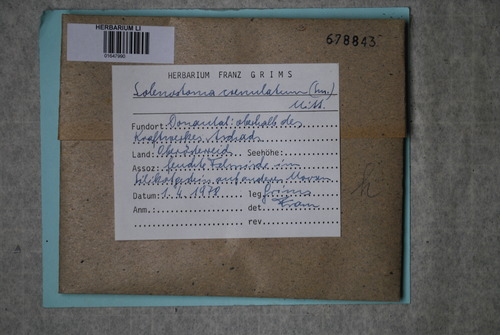 HERBARIUM LI
678843
HERBARIUM FRANZ GRIMS
Solenostoma crenulatum (Sm.)
Mitt.
Fundort: Donautal: oberhalb des
Kraftwerkes Aschach
Land: Oberösterreich Seehöhe:
Assoz: feuchte Felsrinde im
auf anderen Moosen
Datum: 1.4.1970 leg. Grims
Anm.: det. Franz
rev.